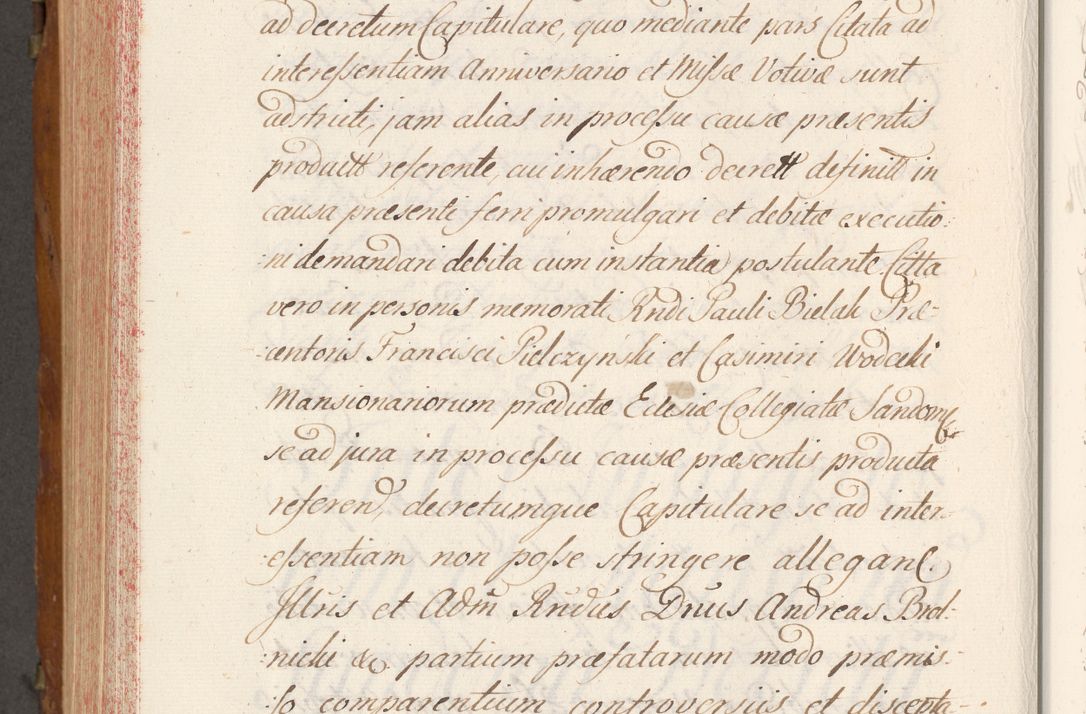 ad decretum Capitulare, quo mediante pars Citata ad
interessentiam Anniversario et Missæ Votivæ sunt
adstricti, jam alias in processu causæ præsentis
productt referente, cui inhærendo decrett definitt in
causa præsenti ferri promulgari et debitæ executio-
ni demandari debita cum instantia postulante. Citta
vero in personis memorati Rndi Pauli Bielak Præ-
centoris Francisci Pielczyński et Casimiri Wodecki
Mansionariorum prædictæ Eclesiæ Collegiatæ Sandom
se ad jura in processu causæ præsentis producta
referen, decretumque Capitulare se ad inter-
essentiam non posse stringere allegan.
Illris et Adm Rndus Dnus Andreas Brol-
nicki &c partium præfatarum modo præmis-
so comparentium controversiis et discepta-